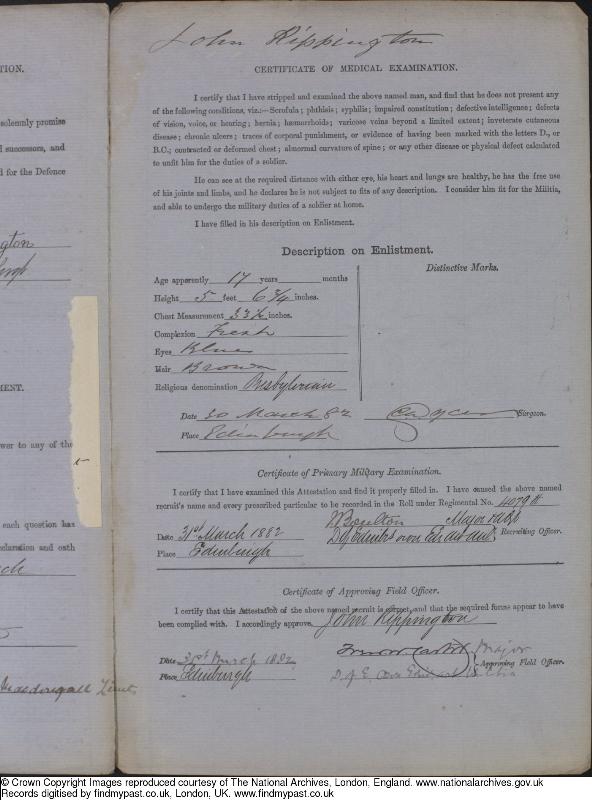 TION.
solemnly promise
successors, and
d for the Defence
gton
burgh
MENT.
wer to any of the
each question has
declaration and oath
Macdougall Lieut
John Rippington
CERTIFICATE OF MEDICAL EXAMINATION.
I certify that I have stripped and examined the above named man, and find that he does not present any
of the following conditions, viz.:—Scrofula; phthisis; syphilis; impaired constitution; defective intelligence; defects
of vision, voice, or hearing; hernia; hæmorrhoids; varicose veins beyond a limited extent; inveterate cutaneous
disease; chronic ulcers; traces of corporal punishment, or evidence of having been marked with the letters D., or
B.C.; contracted or deformed chest; abnormal curvature of spine; or any other disease or physical defect calculated
to unfit him for the duties of a soldier.
He can see at the required distance with either eye, his heart and lungs are healthy, he has the free use
of his joints and limbs, and he declares he is not subject to fits of any description. I consider him fit for the Militia,
and able to undergo the military duties of a soldier at home.
I have filled in his description on Enlistment.
Description on Enlistment.
Distinctive Marks.
Age apparently 17 years months
Height 5 feet 6 3/4 inches.
Chest Measurement 33 1/2 inches.
Complexion Fresh
Eyes Blue
Hair Brown
Religious denomination Presbyterian
Date 30 March 82 Surgeon.
Place Edinburgh
Certificate of Primary Military Examination.
I certify that I have examined this Attestation and find it properly filled in. I have caused the above named
recruit's name and every prescribed particular to be recorded in the Roll under Regimental No. 4079
Boulton Major
Date 31st March 1882 Recruiting Officer.
Place Edinburgh
Certificate of Approving Field Officer.
I certify that this Attestation of the above named recruit is correct, and that the required forms appear to have
been complied with. I accordingly approve John Rippington
Major
Date 31st March 1882 Approving Field Officer.
Place Edinburgh
© Crown Copyright Images reproduced courtesy of The National Archives, London, England. www.nationalarchives.gov.uk
Records digitised by findmypast.co.uk, London, UK. www.findmypast.co.uk